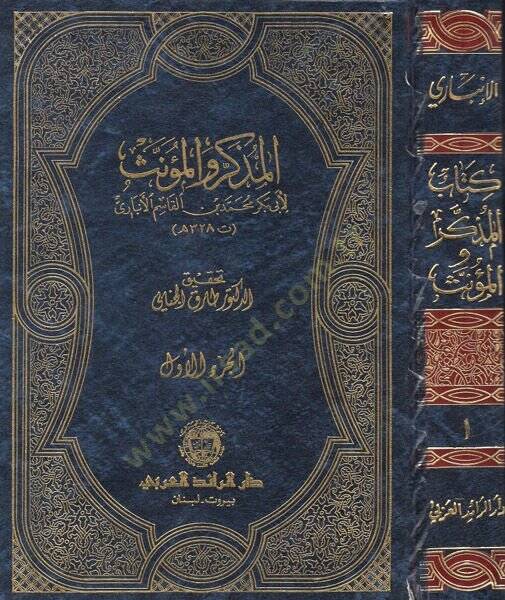 المذكر والمؤنث
لأبي بكر محمد بن القاسم الأنباري
(ت ٣٢٨ هـ)
تحقيق
الدكتور طارق الجنابي
الجزء الأول
دار الرائد العربي
بيروت - لبنان
الأنباري
كتاب
المذكر
و
المؤنث
١
دار الرائد العربي